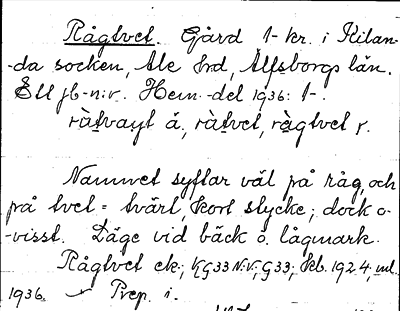 Rågtvet. Gård 1-kr. i Kilan-
-da socken, Ale hrd, Älfsborgs län.
Ett jb-n:r. Hem.-del 1936: 1-.
ràtvayt å, ràtvet, rågtvet r.
Namnet syftar väl på råg, och
på tvet = tvärt, kort stycke; dock o-
-visst. Läge vid bäck o. lågmark.
Rågtvet ek.; KG33 N:V; G33; kb. 1924,
1936. Prep. i.